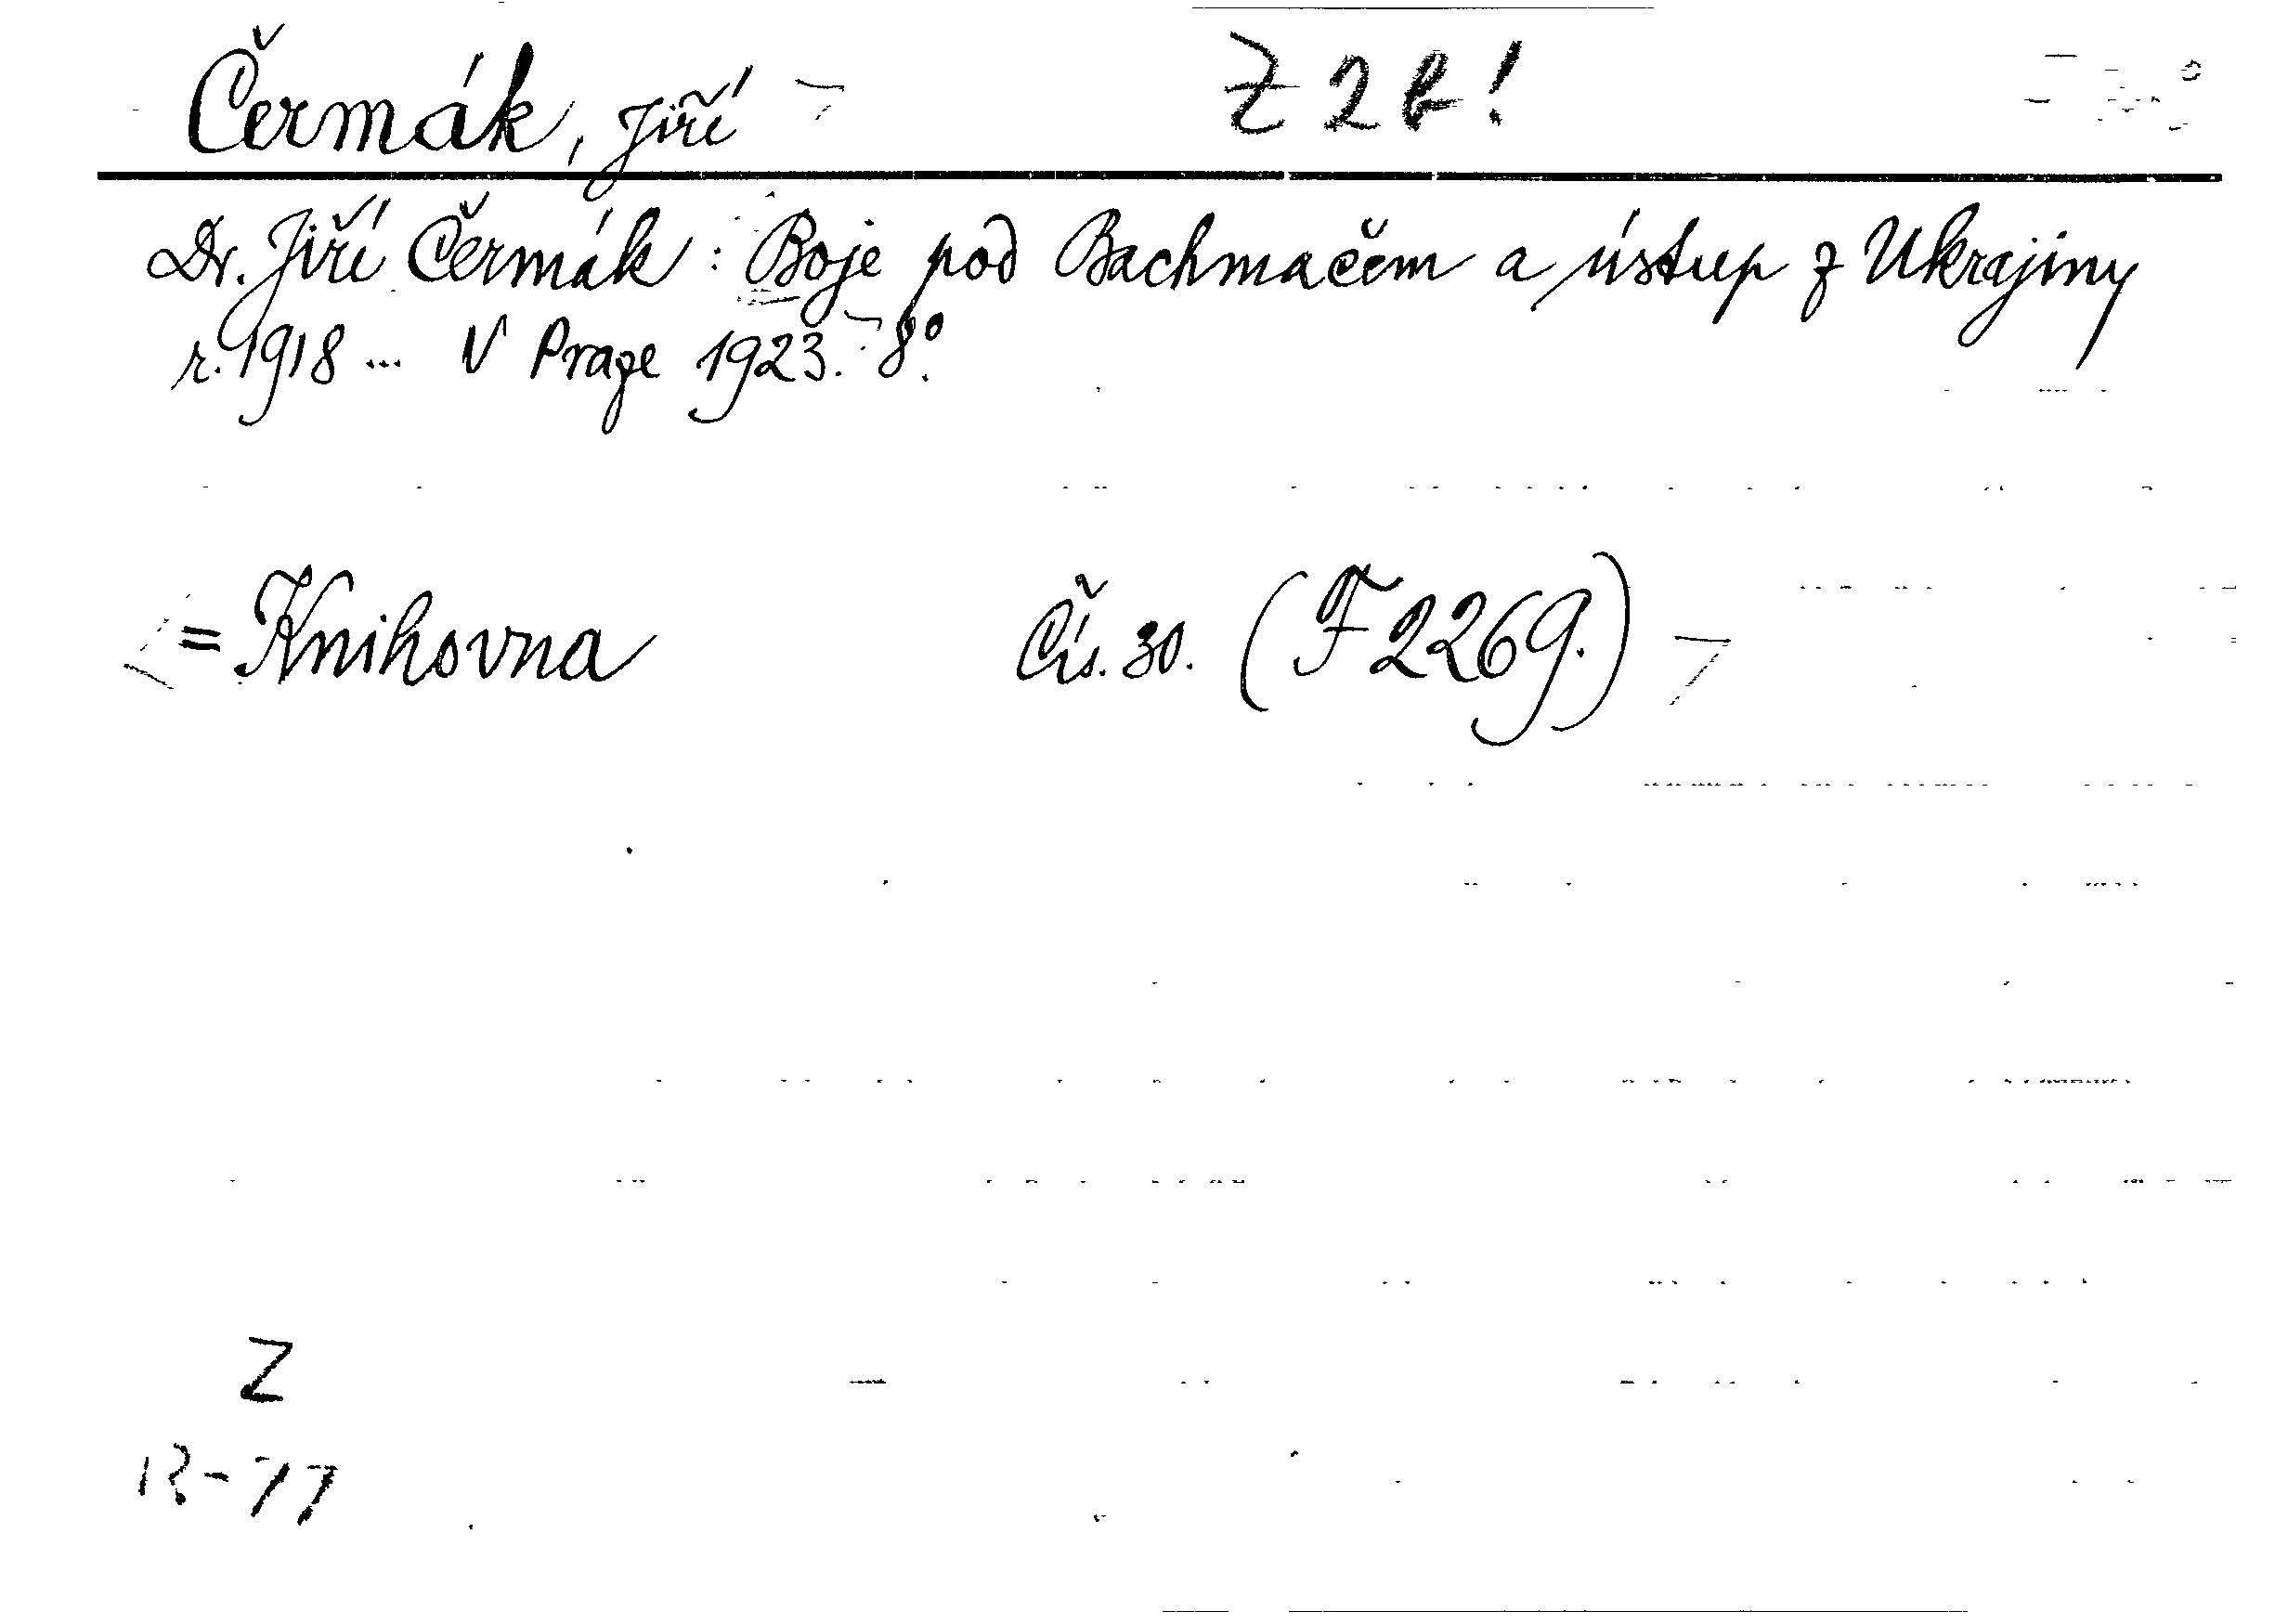 Čermák, Jiří Z 2 b!
Dr. Jiří Čermák: Boje pod Bachmačem a ústup z Ukrajiny
r. 1918 ... V Praze 1923. 8°.
= Knihovna Čís. 30. (F 2269.)
Z